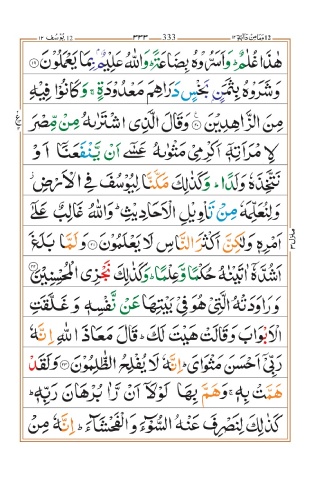 یوسف ۱۲ ۳۳۳ 333 ومامن دآبۃ ۱۲
هٰذَا غُلٰمٌ ؕ وَاَسَرُّوْهُ بِضَاعَةً ؕ وَاللّٰهُ عَلِيْمٌۢ بِمَا يَعْمَلُوْنَ ﴿۱۹﴾
وَشَرَوْهُ بِثَمَنٍۢ بَخْسٍ دَرَاهِمَ مَعْدُوْدَةٍ ۚ وَكَانُوْا فِيْهِ
مِنَ الزَّاهِدِيْنَ ﴿۲۰﴾ وَقَالَ الَّذِى اشْتَرٰٮهُ مِنْ مِّصْرَ
لِامْرَاَتِهٖۤ اَكْرِمِىْ مَثْوٰٮهُ عَسٰٓى اَنْ يَّنْفَعَنَاۤ اَوْ
نَتَّخِذَهٗ وَلَدًا ؕ وَكَذٰلِكَ مَكَّنَّا لِيُوْسُفَ فِى الْاَرْضِ ۫
وَلِنُعَلِّمَهٗ مِنْ تَاْوِيْلِ الْاَحَادِيْثِ ؕ وَاللّٰهُ غَالِبٌ عَلٰٓى
اَمْرِهٖ وَلٰكِنَّ اَكْثَرَ النَّاسِ لَا يَعْلَمُوْنَ ﴿۲۱﴾ وَلَمَّا بَلَغَ
اَشُدَّهٗۤ اٰتَيْنٰهُ حُكْمًا وَّعِلْمًا ؕ وَكَذٰلِكَ نَجْزِى الْمُحْسِنِيْنَ ﴿۲۲﴾
وَرَاوَدَتْهُ الَّتِىْ هُوَ فِىْ بَيْتِهَا عَنْ نَّفْسِهٖ وَغَلَّقَتِ
الْاَبْوَابَ وَقَالَتْ هَيْتَ لَكَ ؕ قَالَ مَعَاذَ اللّٰهِ اِنَّهٗ
رَبِّىْۤ اَحْسَنَ مَثْوَاىَ ؕ اِنَّهٗ لَا يُفْلِحُ الظّٰلِمُوْنَ ﴿۲۳﴾ وَلَقَدْ
هَمَّتْ بِهٖ ۚ وَهَمَّ بِهَا لَوْلَاۤ اَنْ رَّاٰ بُرْهَانَ رَبِّهٖ ؕ
كَذٰلِكَ لِنَصْرِفَ عَنْهُ السُّوْٓءَ وَالْفَحْشَآءَ ؕ اِنَّهٗ مِنْ